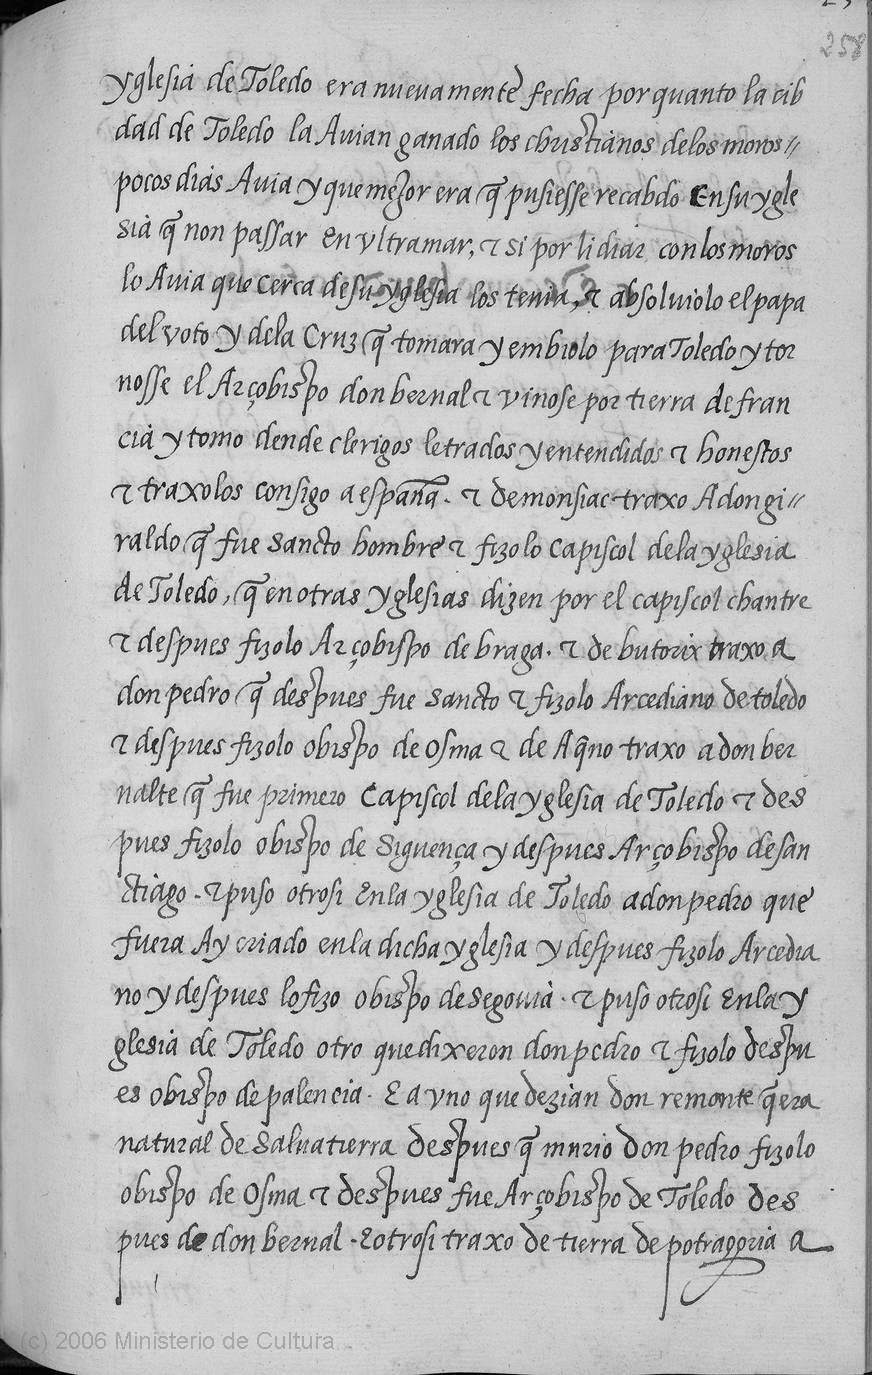 258
yglesia de Toledo era nuevamente fecha por quanto la cib
dad de Toledo la Auian ganado los christianos delos moros //
pocos dias Auia y que mejor era q̃ pusiesse recabdo En su ygle
sia q̃ non passar En Vltramar, τ si por lidiar con los moros
lo Auia que cerca de su yglesia los tenia, τ absoluiolo el papa
del voto y dela Cruz q̃ tomara y embiolo para Toledo y tor
nosse el Arçobispo don bernal τ vinose por tierra de fran
cia y tomo dende clerigos letrados y entendidos τ honestos
τ traxolos consigo a españa. τ de monsiac traxo A don gi //
raldo q̃ fue sancto hombre τ fizolo capiscol dela yglesia
de Toledo, q̃ en otras yglesias dizen por el capiscol chantre
τ despues fizolo Arçobispo de braga. τ de butorix traxo a
don pedro q̃ despues fue sancto τ fizolo Arcediano de toledo
τ despues fizolo obispo de Osma τ de Aq̃no traxo a don ber
nalte q̃ fue primero Capiscol dela yglesia de Toledo τ des
pues fizolo obispo de Siguença y despues Arçobispo de san
ctiago. τ puso otrosi En la yglesia de Toledo a don pedro que
fuera Ay criado en la dicha yglesia y despues fizolo Arcedia
no y despues lo fizo obispo de Segouia. τ puso otrosi En la y
glesia de Toledo otro que dixeron don pedro τ fizolo despu
es obispo de palencia. E a vno que dezian don remonte q̃ era
natural de Saluatierra despues q̃ murio don pedro fizolo
obispo de Osma τ despues fue Arçobispo de Toledo des
pues de don bernal. E otrosi traxo de tierra de potragoria a
(c) 2006 Ministerio de Cultura